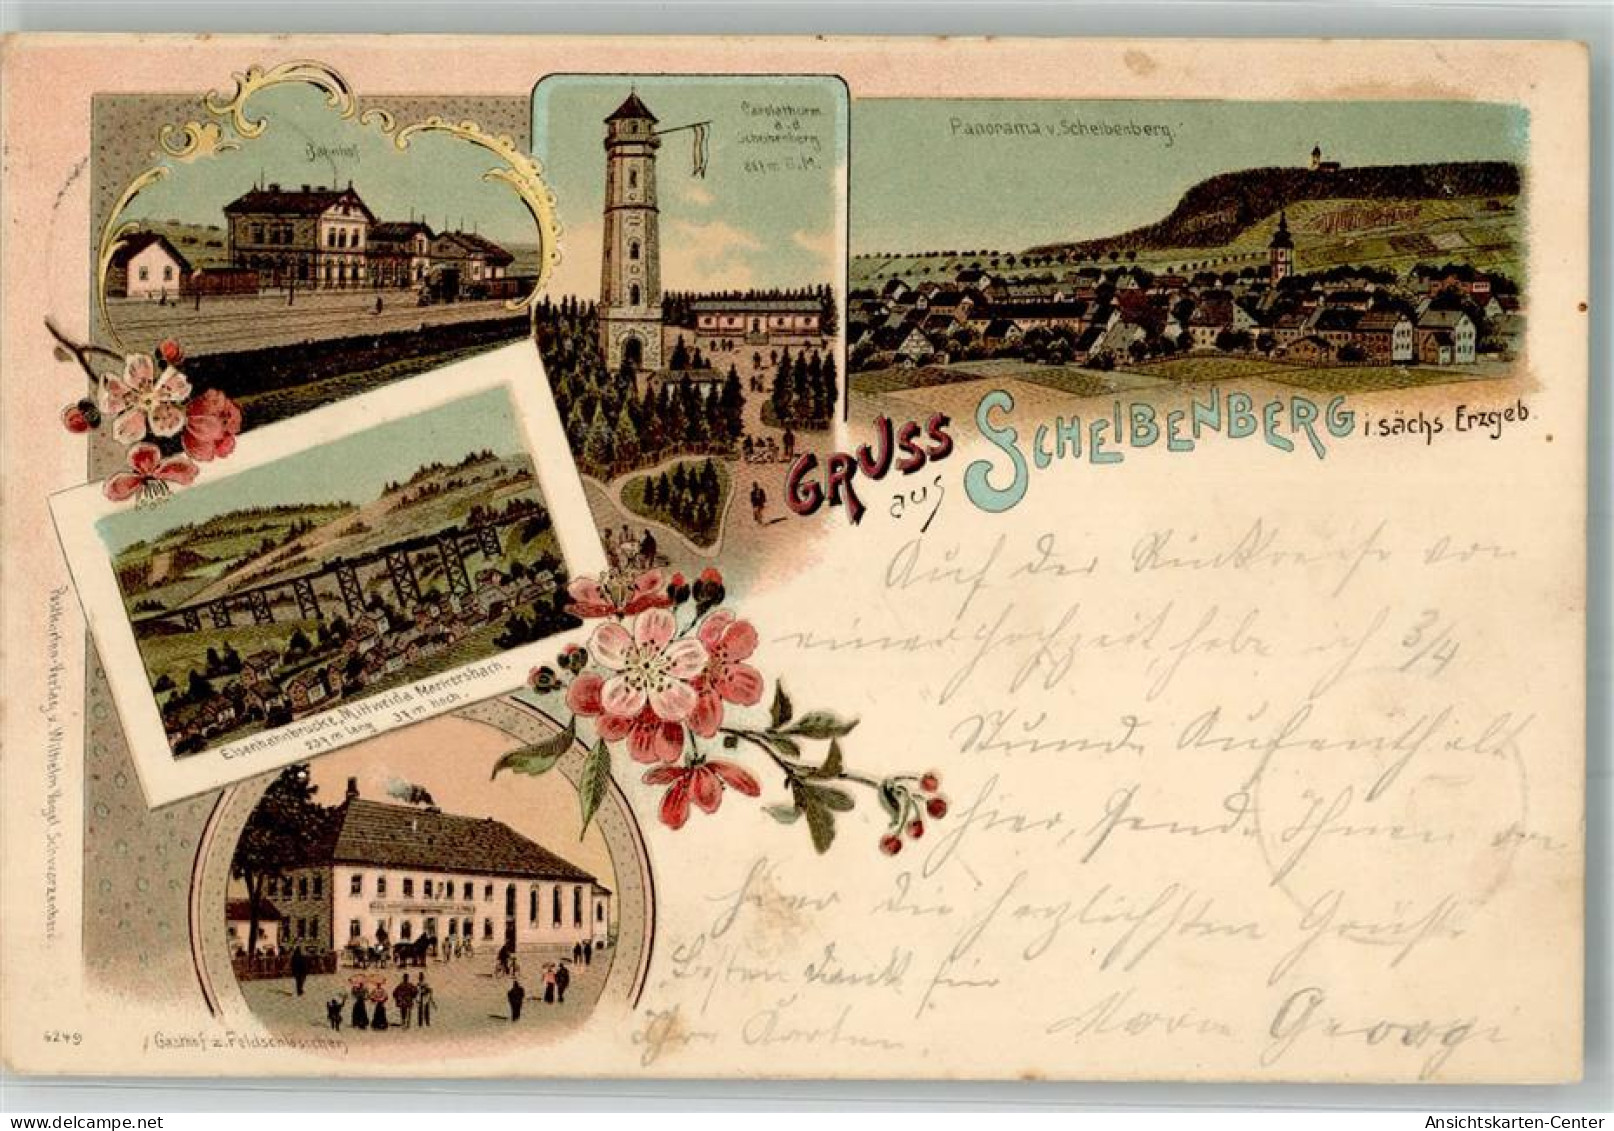 Bahnhof
Carolathurm
a. d.
Scheibenberg
Panorama v. Scheibenberg.
GRUSS
aus
SCHEIBENBERG i. sächs. Erzgeb.
Eisenbahnbrücke, Mittweida Markersbach.
237 m lang 37 m hoch.
Gasthof z. Feldschlösschen
6249
Postkarten-Verlag v. Wilhelm Vogel Schwarzenberg.
Auf der Rückreise von
einer Hochzeit, habe ich 3/4
Stunde Aufenthalt
hier, sende Ihnen von
hier die herzlichsten Grüße
Besten Dank für
Ihre Karten.
Georgi
Ansichtskarten-Center